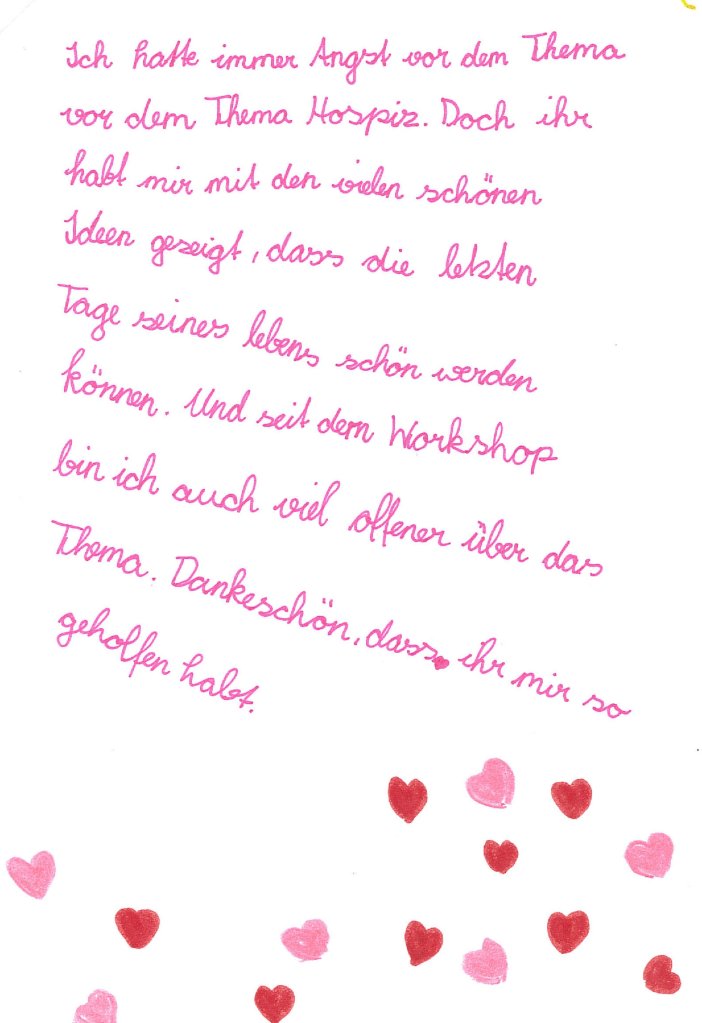 Ich hatte immer Angst vor dem Thema
vor dem Thema Hospiz. Doch ihr
habt mir mit den vielen schönen
Ideen gezeigt, dass die letzten
Tage seines lebens schön werden
können. Und seit dem Workshop
bin ich auch viel offener über das
Thema. Dankeschön, dass ihr mir so
geholfen habt.